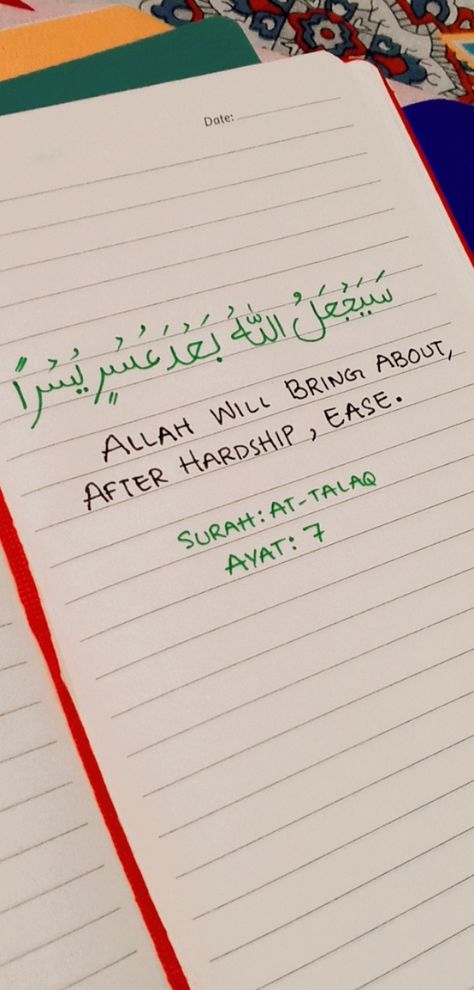 Date:
سَيَجْعَلُ اللّٰهُ بَعْدَ عُسْرٍ يُسْرًا
ALLAH WILL BRING ABOUT,
AFTER HARDSHIP, EASE.
SURAH: AT-TALAQ
AYAT: 7